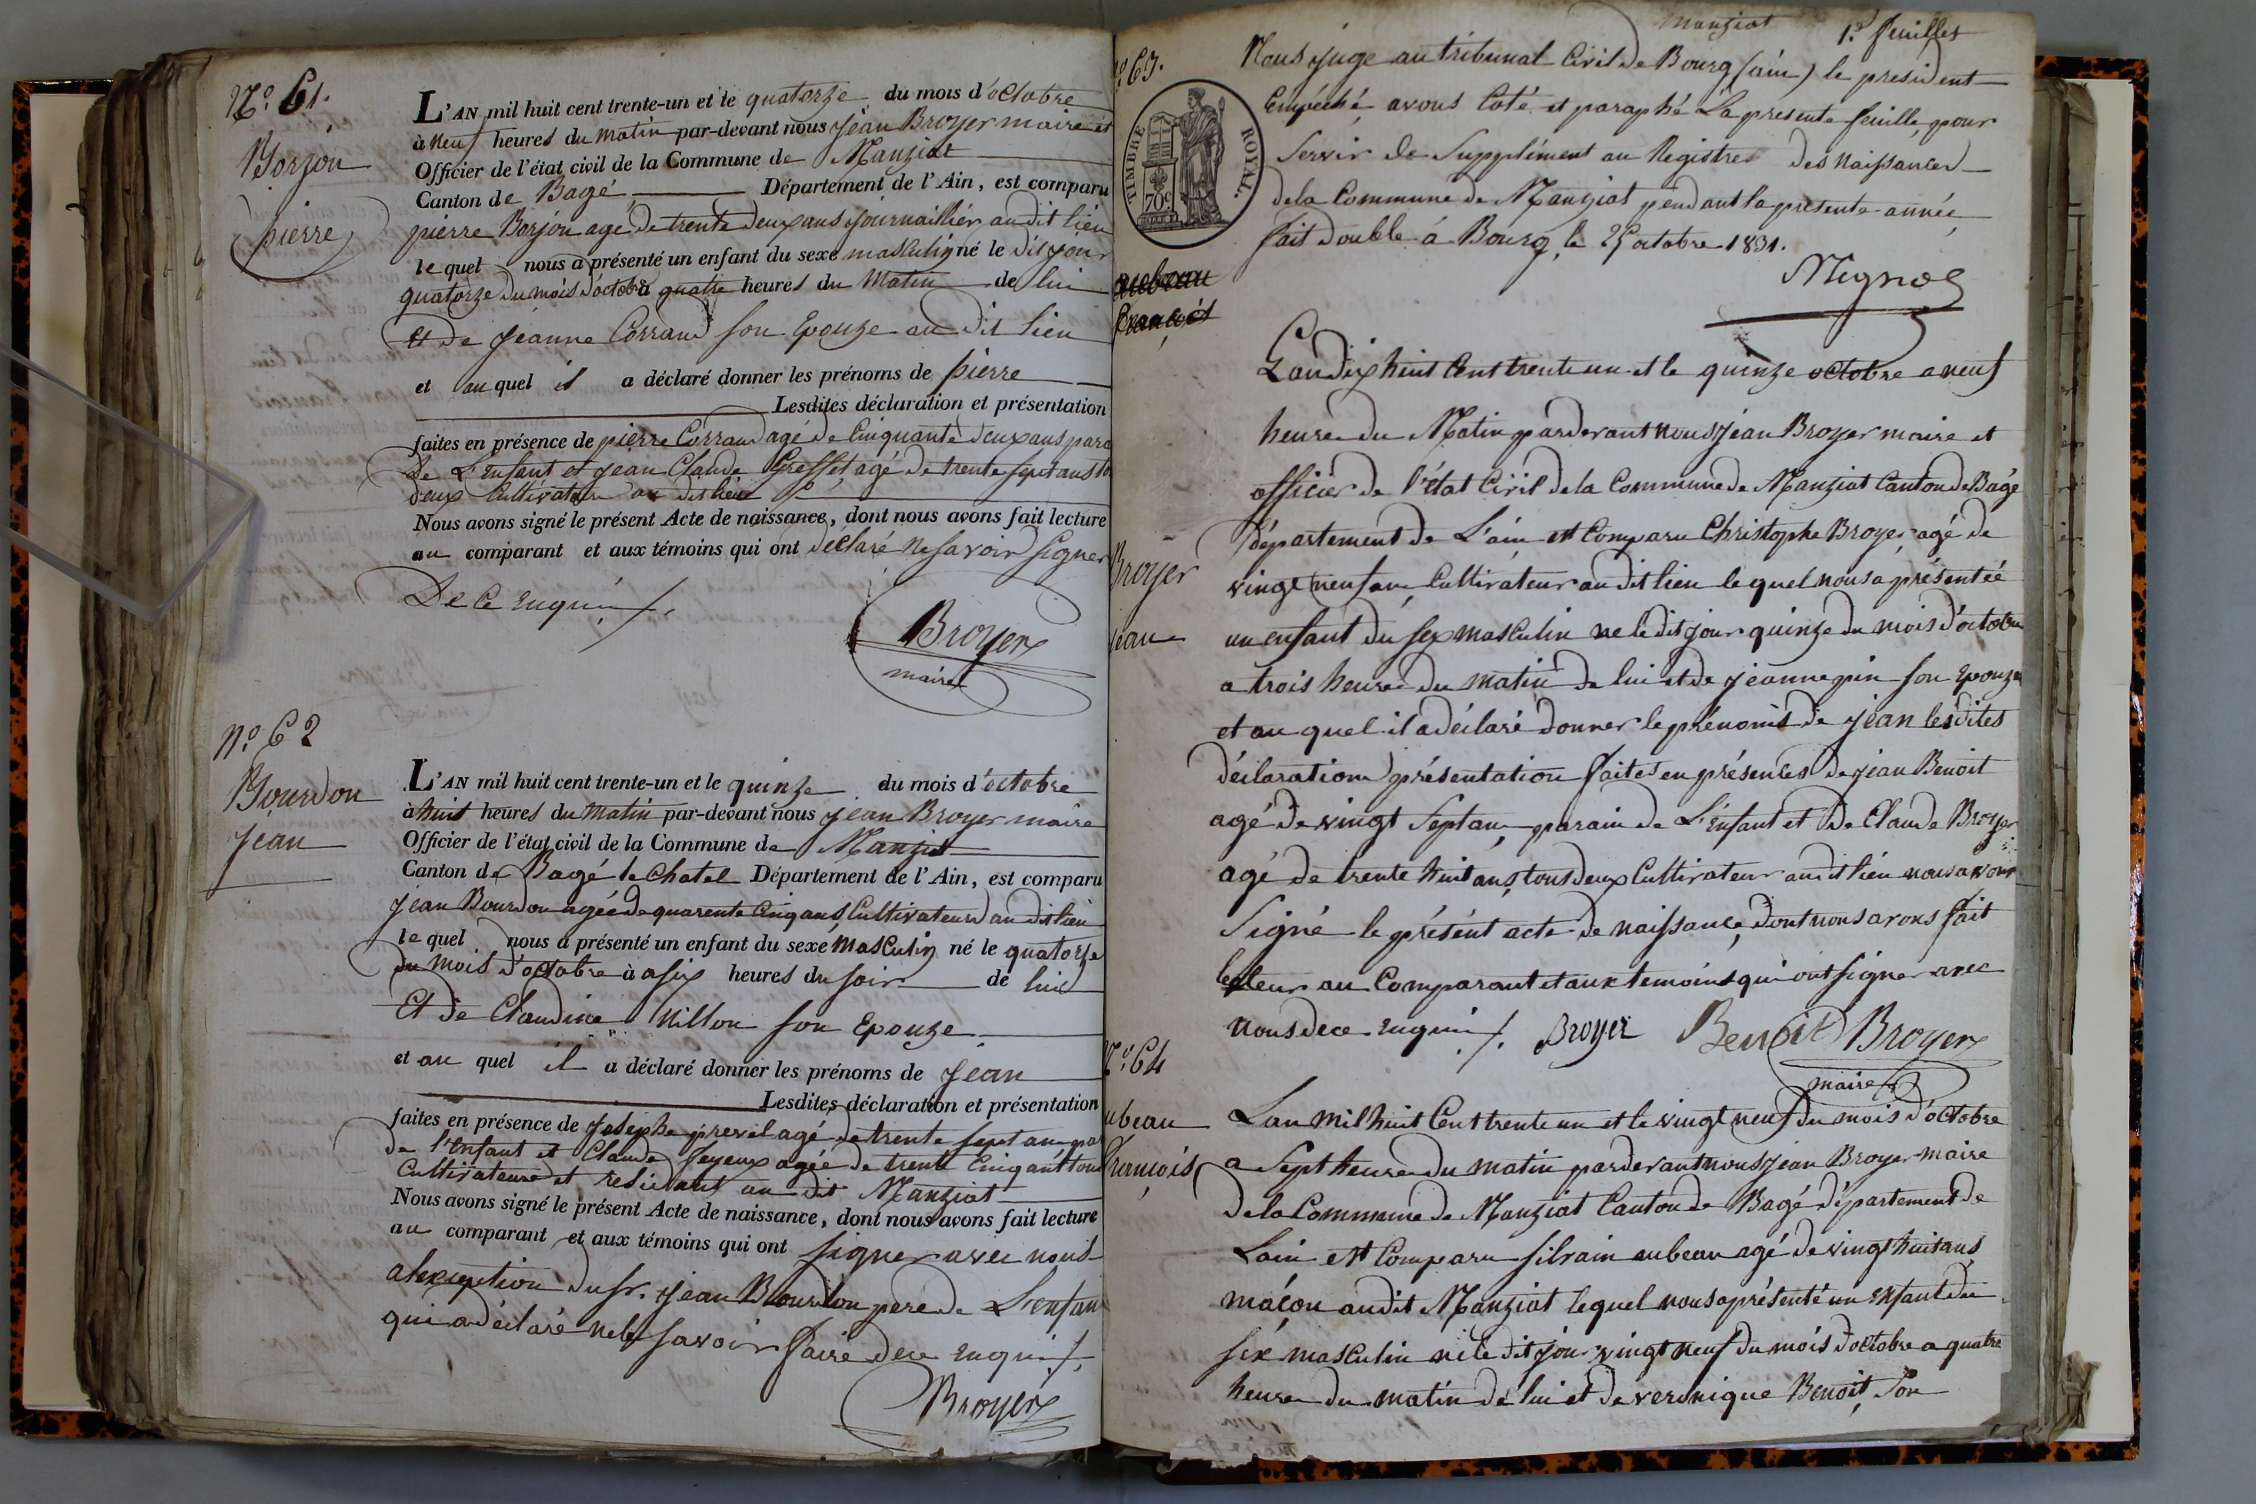 N.° 61.
Borjon
pierre
L'AN mil huit cent trente-un et le quatorze du mois d'octobre
à neuf heures du matin par-devant nous jean Broyer maire et
Officier de l'état civil de la Commune de Manziat
Canton de Bagé Département de l'Ain, est comparu
pierre Borjon agé de trente deux ans journaillier au dit lieu
le quel nous a présenté un enfant du sexe masculin né le dit jour
quatorze du mois d'octobre à quatre heures du matin de lui
et de jeanne Corrand son Epouze au dit lieu
et au quel il a déclaré donner les prénoms de pierre
Lesdites déclaration et présentation
faites en présence de pierre Corrand agé de Cinquante deux ans para
de L'Enfant et jean Claude Greffet agé de trente sept ans to
deux Cultivateur au dit lieu
Nous avons signé le présent Acte de naissance, dont nous avons fait lecture
au comparant et aux témoins qui ont déclaré ne savoir signer
De Ce Enquis
Broyer
maire
N.° 62
Bourdon
jean
L'AN mil huit cent trente-un et le quinze du mois d'octobre
à huit heures du matin par-devant nous jean Broyer maire
Officier de l'état civil de la Commune de Manziat
Canton de Bagé le Chatel Département de l'Ain, est comparu
jean Bourdon agée de quarente Cinq ans, Cultivateur au dit lieu
le quel nous a présenté un enfant du sexe masculin né le quatorze
du mois d'octobre à a six heures du soir de lui
Et de Claudine Nillon son Epouze
et au quel il a déclaré donner les prénoms de jean
Lesdites déclaration et présentation
faites en présence de josephe prevel agé de trente sept an par
de l'enfant et Claude feyeux agée de trente Cinq ans tous
Cultivateur et residant au dit Manziat
Nous avons signé le présent Acte de naissance, dont nous avons fait lecture
au comparant et aux témoins qui ont signer avec nous
alexception du sr. jean Bourdon pere de L'enfan
qui a déclaré ne le savoir faire de ce enquis
Broyer
manziat 1.e feuillet
Nous juge au tribunal Civil de Bourg (ain) le president
Empéché, avons Coté et paraphé La presente feuille, pour
Servir de Supplément au Registre des naissances
de la Commune de Manziat pendant la presente année
fait double á Bourg, le 25 octobre 1831.
TIMBRE ROYAL.
70c
N.° 63.
aubeau
François
Broyer
jean
L'an dix huit Cent trente un et le quinze octobre a neuf
heure du Matin par devant nous jean Broyer maire et
officier de l'état Civil de la Commune de Manziat Canton de Bagé
département de L'ain est Comparu Christophe Broyer agé de
vingt neuf an, Cultivateur au dit lieu le quel nous a présentée
un enfant du sex masculin ne le dit jour quinze du mois d'octobre
a trois heure du matin de lui et de jeanne pin son Epouze
et au quel il a déclaré donner le prénoms de jean lesdites
déclaration présentation faites en présences de jean Benoit
agé de vingt Sept an, parain de L'Enfant et de Claude Broyer
agé de trente huit ans, tous deux Cultivateur au dit lieu nous avons
Signé le présént acte de naissance, dont nous avons fait
lecteur au Comparant et aux temoins qui ont signer avec
nous de ce enquis Broyer Benoit Broyer
maire
N.° 64
aubeau
François
L'an mil huit Cent trente un et le vingt neuf du mois d'octobre
a Sept heure du matin par devant nous jean Broyer maire
de la Commune de Manziat Canton de Bagé département de
Lain est Comparu silvain aubeau agé de vingt huit ans
máçon au dit Manziat lequel nous a présenté un Enfant du
séx masculin né le dit jour vingt neuf du mois d'octobre a quatre
heure du matin de lui et de veronique Benoit, son